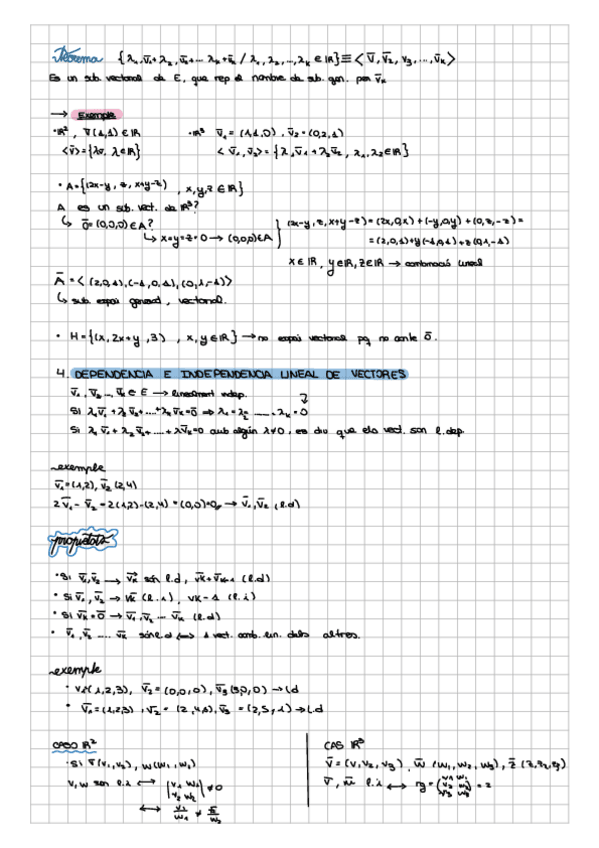 Teorema { λ₁,v̄₁+λ₂,v̄₂+... λ₂+v̄ₖ / λ₁, λ₂,...,λₖ ∈ ℝ} ≡ < v̄, v̄₂, v₃, ..., v̄ₖ >
Es un sub. vectorial de E, que rep el nombre de sub. gen. per v̄ₖ
→ Exemple
·ℝ², v̄(1,1) ∈ ℝ ·ℝ³ v̄₁ = (1,1,0), v̄₂ = (0,2,1)
<v̄> = {λv̄, λ∈ℝ} < v̄₁, v̄₂> = {λ₁v̄₁ + λ₂v̄₂, λ₁, λ₂∈ℝ}
· A = {(2x-y, z, x+y-z), x,y,z ∈ ℝ}
A es un sub. vect. de ℝ³?
↳ 0̄ = (0,0,0) ∈ A?
↳ x=y=z=0 → (0,0,0)∈A
(2x-y, z, x+y-z) = (2x,0,x) + (-y,0,y) + (0,z,-z) =
= (2,0,1)x+y(-1,0,1)+z(0,1,-1)
x ∈ ℝ, y∈ℝ, z∈ℝ → combinació lineal
Ā = < (2,0,1), (-1,0,1), (0,1,-1)>
↳ sub. espai general, vectorial.
· H = {(x, 2x+y, 3), x, y ∈ ℝ} → no espai vectorial pq no conte 0̄.
4. DEPENDENCIA E INDEPENDENCIA LINEAL DE VECTORES
v̄₁, v̄₂ ... v̄ₖ ∈ E → linealment indep.
Si λ₁v̄₁ + λ₂v̄₂+....+λₖv̄ₖ=0̄ ⇒ λ₁ = λ₂ = ..... λₖ = 0
Si λ₁v̄₁ + λ₂v̄₂+....+ λv̄ₖ=0 amb algún λ≠0, es diu que els vect. son l.dep.
exemple
v̄₁=(1,2), v̄₂(2,4)
2v̄₁ - v̄₂ = 2(1,2)-(2,4) = (0,0) → v̄₁,v̄₂ (l.d)
propietats
· Si v̄₁,v̄₂ → v̄ₖ són l.d, v̄ₖ+v̄ₖ₋₁ (l.d)
· Si v̄₁, v̄₂ → v̄ₖ (l.i), vk-1 (l.i)
· Si v̄ₖ=0̄ → v̄₁,v̄₂ ... v̄ₖ (l.d)
· v̄₁,v̄₂ .... v̄ₖ són l.d ⟺ 1 vect. comb. lin. dels altres.
exemple
· v₁(1,2,3), v̄₂ = (0,0,0), v̄₃ (5,0,0) → l.d
· v̄₁=(1,2,3), v̄₂ = (2,4,5), v̄₃ = (2,5,1) → l.d
CASO ℝ² CAS ℝ³
·Si v̄(v₁,v₂), w(w₁,w₂) v̄ = (v,v₂,v₃), w̄ (w₁, w₂, w₃), z̄
v,w son l.i ⟷ |v₁ w₁ / v₂ w₂| ≠0 v̄, l.i ⟷ rg = (v₁ w₁ / v₂ w₂ / v₃ w₃) = 2
⟷ v₁/w₁ ≠ /w₂